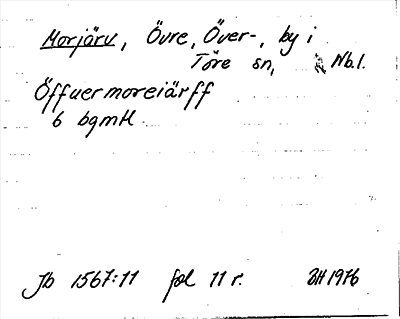 Morjärv, Övre, Över-, by i
Töre sn, Nb.l.
Öffuermoreiärff
6 bgmtl
Jb 1567:11 fol 11 r. BH 1976